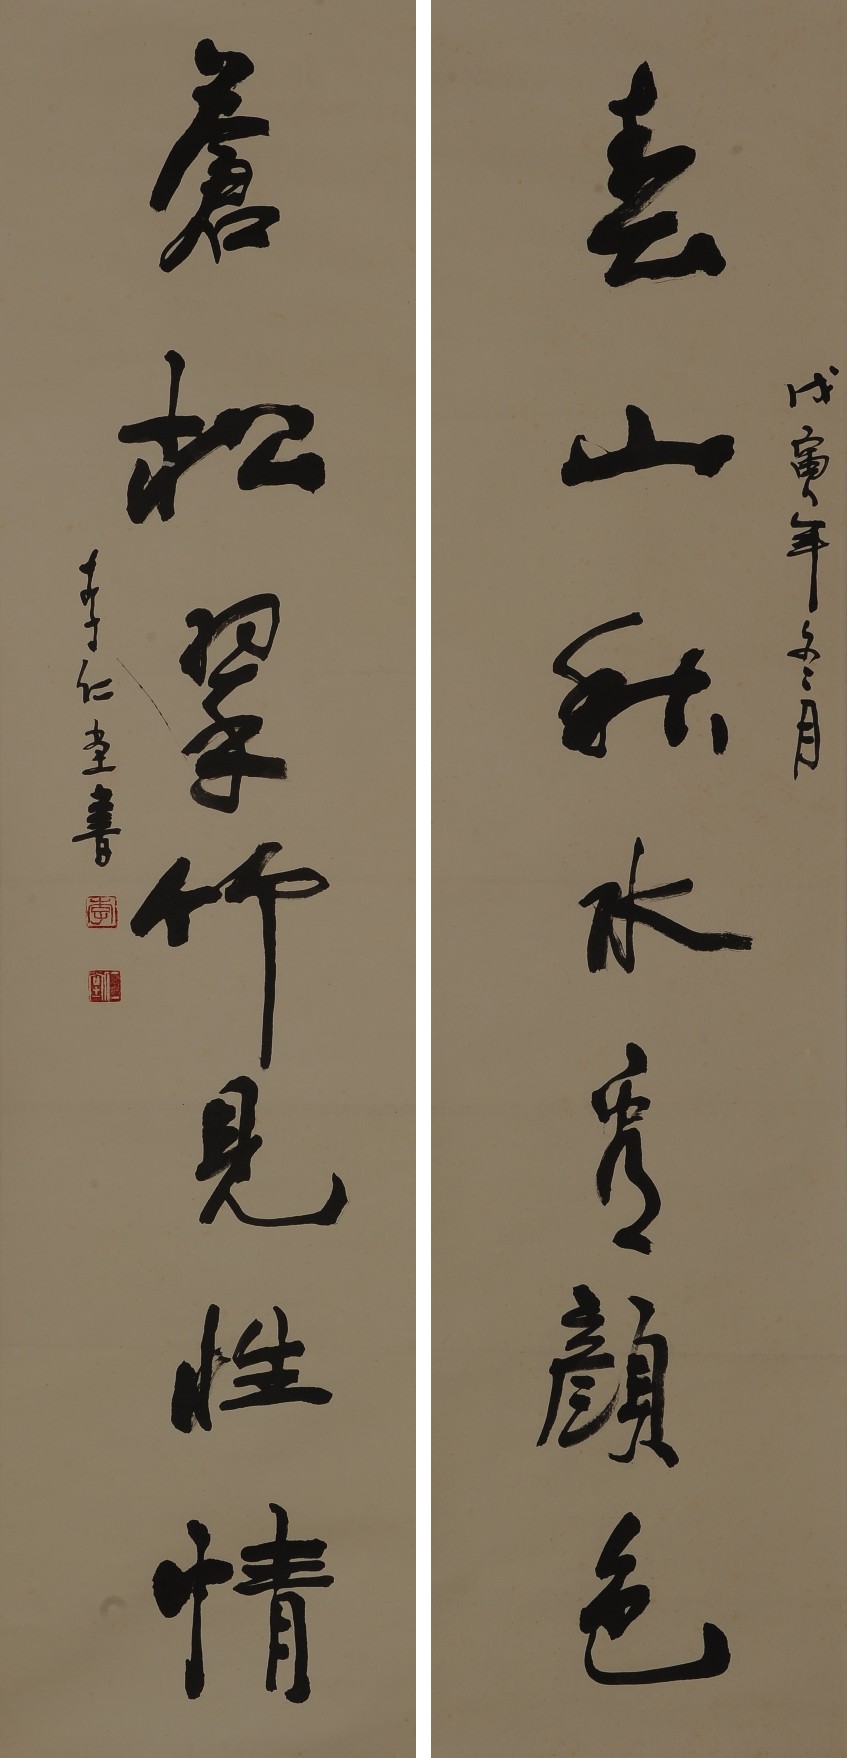 戊寅年冬月
春山秋水秀顏色
蒼松翠竹見性情
李仁堂書
李
仁堂